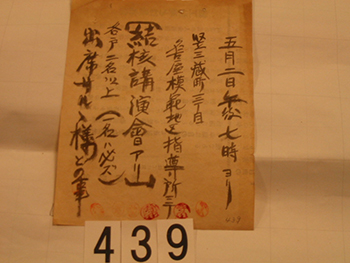 五月二日午后七時ヨリ
竪三蔵町二丁目
名古屋模範地区指導所ニテ
結核講演會アリ
各戸二名以上(一名ハ必ズ)
出席サルヽ様との事
439